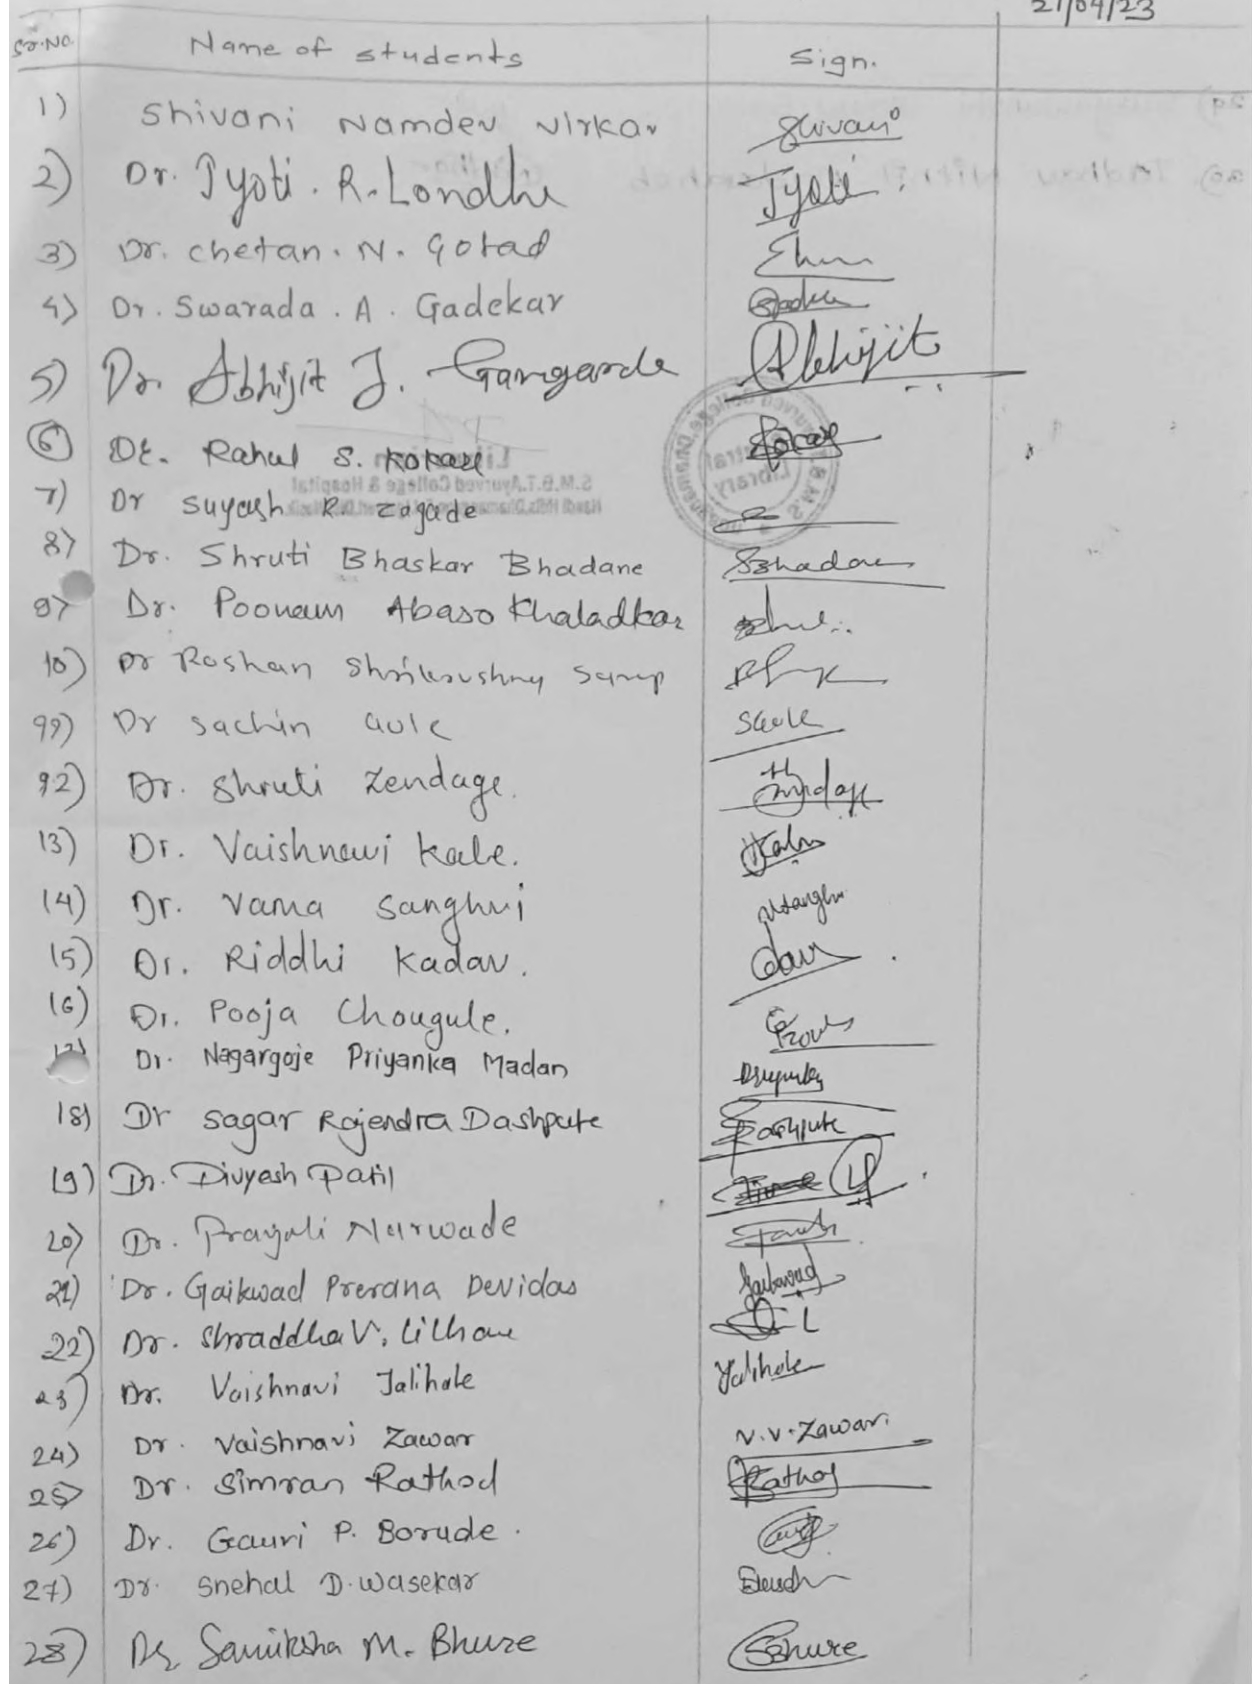 21/04/23
Sr.No. Name of students Sign.
1) Shivani Namdev Nirkar Shivani
2) Dr. Jyoti. R. Londhe Jyoti
3) Dr. chetan. N. Gotad
4) Dr. Swarada. A. Gadekar
5) Dr. Abhijit J. Gangarde Abhijit
6) Dr. Rahul S. Kokare
7) Dr Suyash R. Zagade
8) Dr. Shruti Bhaskar Bhadane
9) Dr. Poonam Abaso Khaladkar
10) Dr Roshan
11) Dr Sachin Aule SAule
12) Dr. Shruti Zendage.
13) Dr. Vaishnavi Kale.
14) Dr. Vama Sanghvi
15) Dr. Riddhi Kadav.
16) Dr. Pooja Chougule.
17) Dr. Nagargoje Priyanka Madan
18) Dr Sagar Rajendra Dashpute
19) Dr. Divyesh Patil
20) Dr. Prayali Narwade
21) Dr. Gaikwad Prerana Devidas Gaikwad
22) Dr. Shraddha V.
23) Dr. Vaishnavi Jalihale Jalihale
24) Dr. Vaishnavi Zawar V.V.Zawar
25) Dr. Simran Rathod Rathod
26) Dr. Gauri P. Borude.
27) Dr. Snehal D. Wasekar
28) Dr. Samiksha M. Bhure Bhure